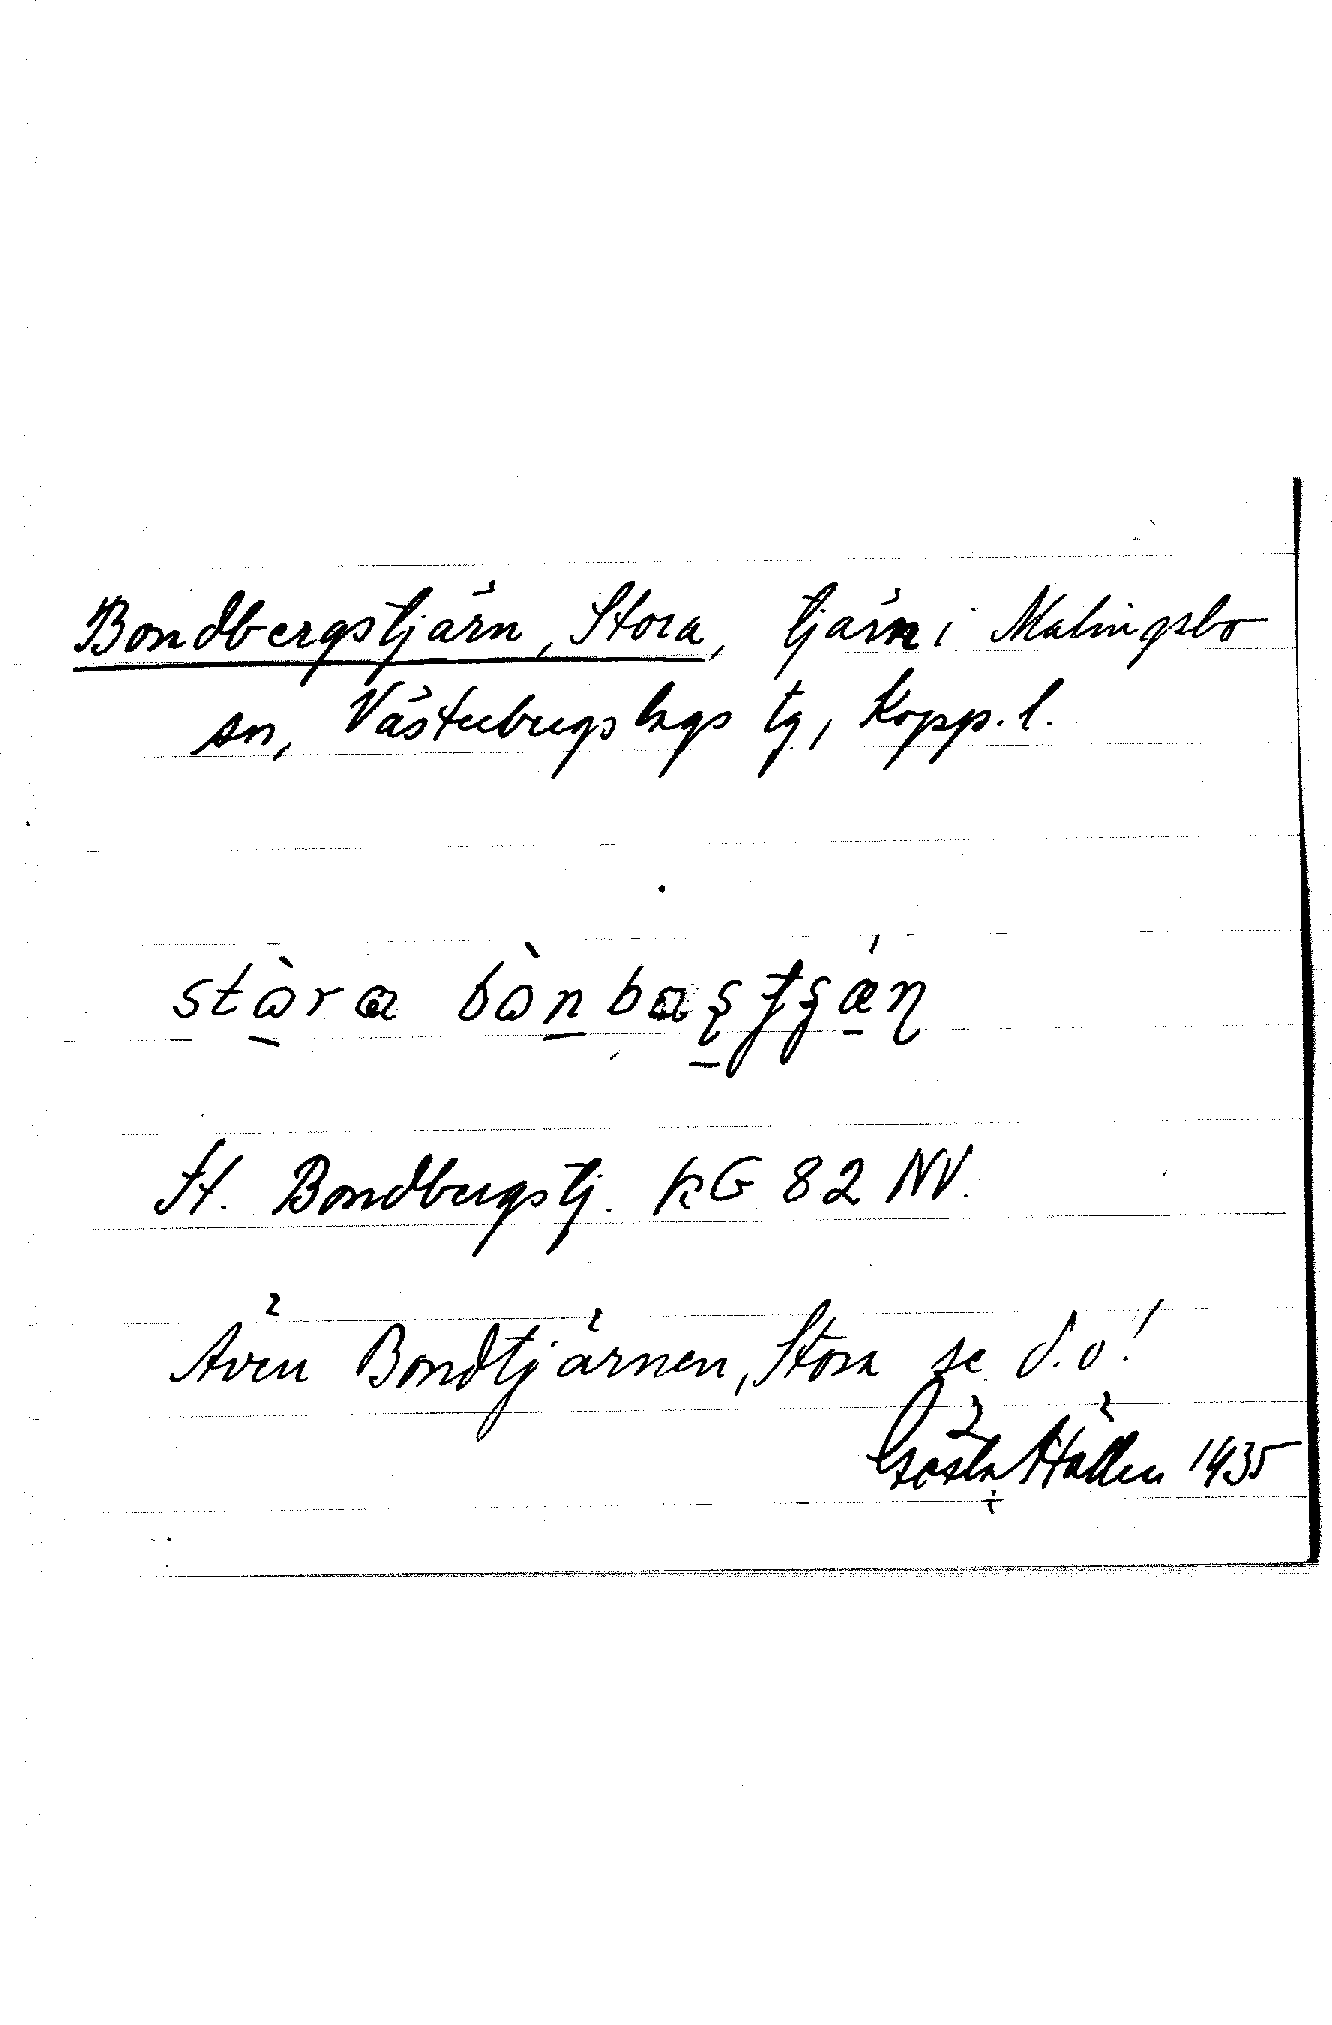 Bondbergstjärn, Stora, tjärn i Malingsbo
sn, Västerbergslags tg, Kopp. l.
stὼra bὼnbaʂtʂǽɳ
St. Bondbergstj. kG 82 NV.
Även Bondtjärnen, Stora se d.o!
Gösta Hallén 1935